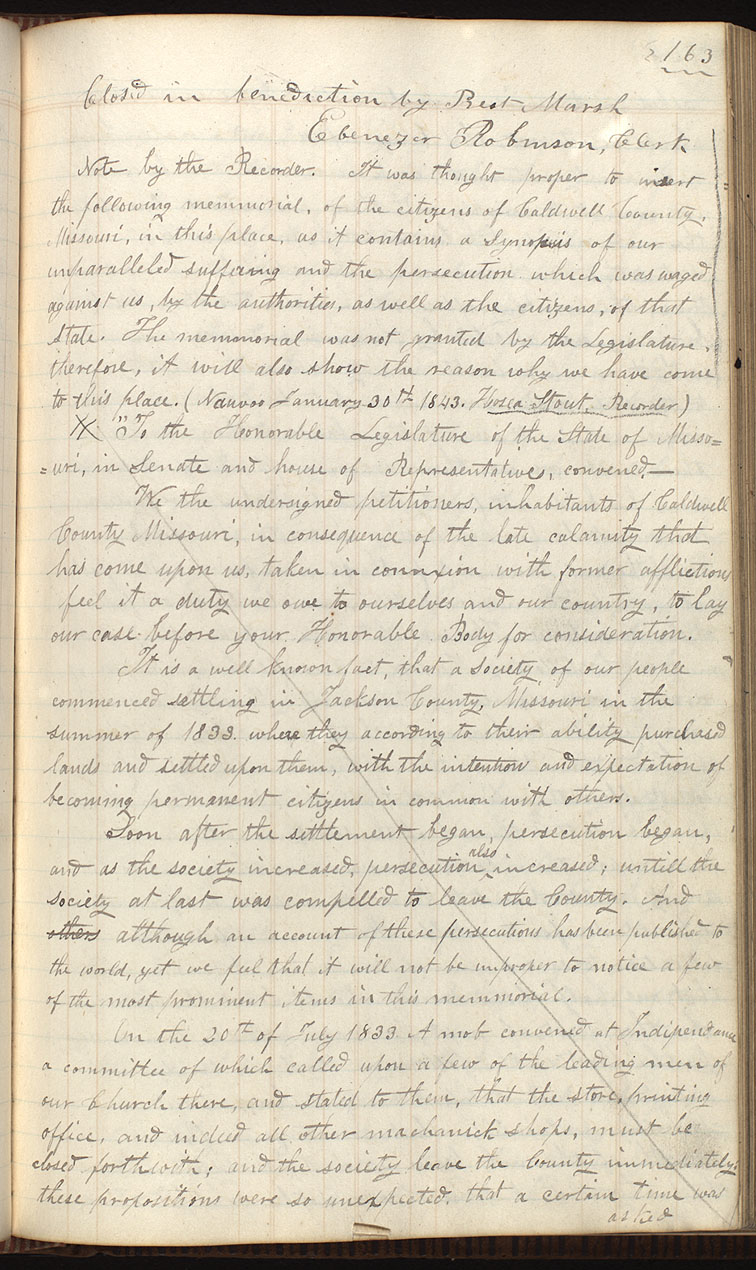 163
Closed in benediction by Prest Marsh
Ebenezer Robinson, Clerk
Note by the Recorder. It was thought proper to insert
the following memmorial, of the citizens of Caldwell County,
Missouri, in this place, as it contains a Synopsis of our
unparalleled suffering and the persecution which was waged
against us, by the authorities, as well as the citizens, of that
state. The memmorial was not granted by the Legislature,
therefore, it will also show the reason why we have come
to this place. (Nauvoo January 30th 1843. Hosea Stout, Recorder)
"To the Honorable Legislature of the State of Misso=
=uri, in Senate and house of Representatives, convened.—
We the undersigned petitioners, inhabitants of Caldwell
County Missouri, in consequence of the late calamity that
has come upon us, taken in connxion with former afflictions
feel it a duty we owe to ourselves and our country, to lay
our case before your Honorable Body for consideration.
It is a well known fact, that a society of our people
commenced settling in Jackson County, Missouri in the
summer of 1833. where they according to their ability purchased
lands and settled upon them, with the intention and expectation of
becoming permanent citizens in common with others.
Soon after the settlement began, persecution began,
and as the society increased, persecution also increased; untill the
society at last was compelled to leave the County. And
others although an account of these persecutions has been published to
the world, yet we feel that it will not be improper to notice a few
of the most prominent items in this memmorial.
On the 20th of July 1833 A mob convened at Independance
a committee of which called upon a few of the leading men of
our Church there, and stated to them, that the store, printing
office, and indeed all other machanick shops, must be
closed forthwith; and the society leave the County immediately.
these propositions were so unexpected, that a certain time was
asked